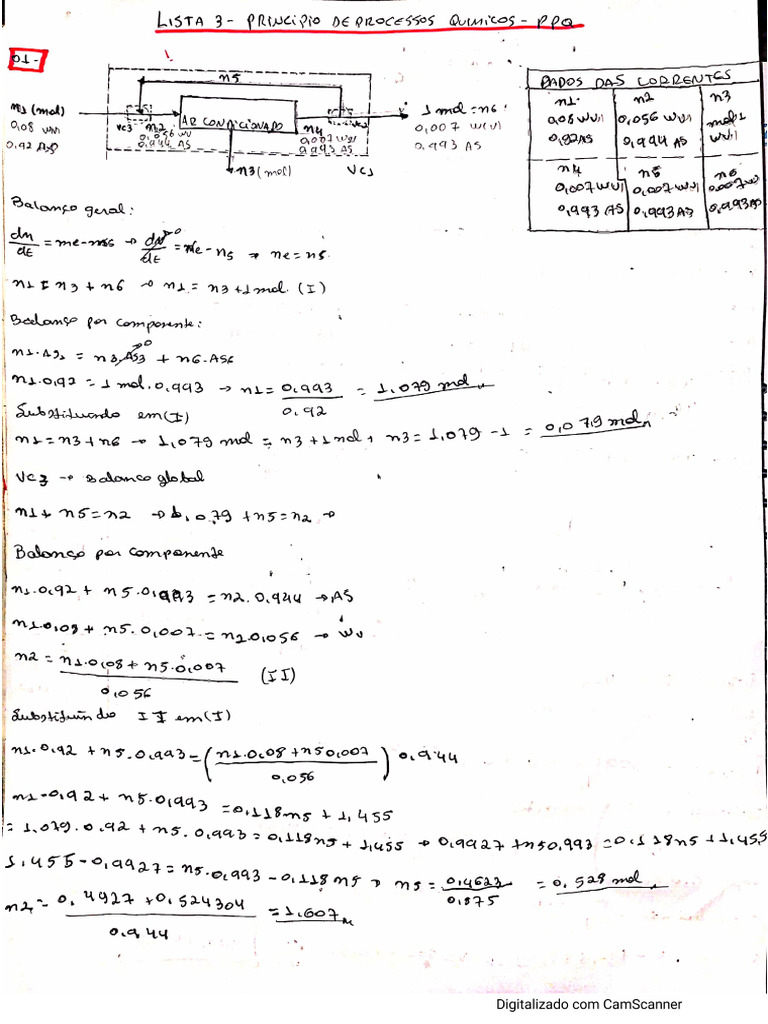 LISTA 3 - PRINCIPIO DE PROCESSOS QUIMICOS - PPQ
01-
n5
n1 (mol)
0,08 wv1
0,92 AS
VC3
n2
0,056 wv
0,944 AS
AR CONDICIONADO
n4
0,007 wv
0,993 AS
1 mol = n6
0,007 wv
0,993 AS
n3 (mol)
VC1
DADOS DAS CORRENTES
n1 n2 n3
0,08 wv1 0,056 wv1
0,92 AS 0,944 AS wv1
n4 n5 n6
0,007 wv1 0,007 wv1 0,007 wv1
0,993 AS 0,993 AS 0,993 AS
Balanço geral:
dn/dt = me - → dN/dt = ne - ns → ne = ns.
n1 = n3 + n6 → n1 = n3 + 1 mol. (I)
Balanço por componente:
n1.AS1 = n3.AS3 + n6.AS6
n1.0,92 = 1 mol.0,993 → n1 = 0,993/0,92 = 1,079 mol
Substituindo em (I)
n1 = n3 + n6 → 1,079 mol = n3 + 1 mol, n3 = 1,079 - 1 = 0,079 mol
VC3 → Balanco global
n1 + n5 = n2 → 1,079 + n5 = n2 →
Balanço por componente
n1.0,92 + n5.0,993 = n2.0,944 → AS
n1.0,08 + n5.0,007 = n2.0,056 → wv
n2 = n1.0,08 + n5.0,007 / 0,056 (II)
Substituindo II em (I)
n1.0,92 + n5.0,993 = (n1.0,08 + n5 0,007 / 0,056) 0,944
n1.0,92 + n5.0,993 = 0,118n5 + 1,455
= 1,079.0,92 + n5.0,993 = 0,118n5 + 1,455 → 0,9927 + n5 0,993 = 0,118n5 + 1,455
1,455 - 0,9927 = n5.0,993 - 0,118n5 → n5 = 0,4623/0,875 = 0,528 mol
n2 = 0,4927 + 0,524304 / 0,944 = 1,607
Digitalizado com CamScanner